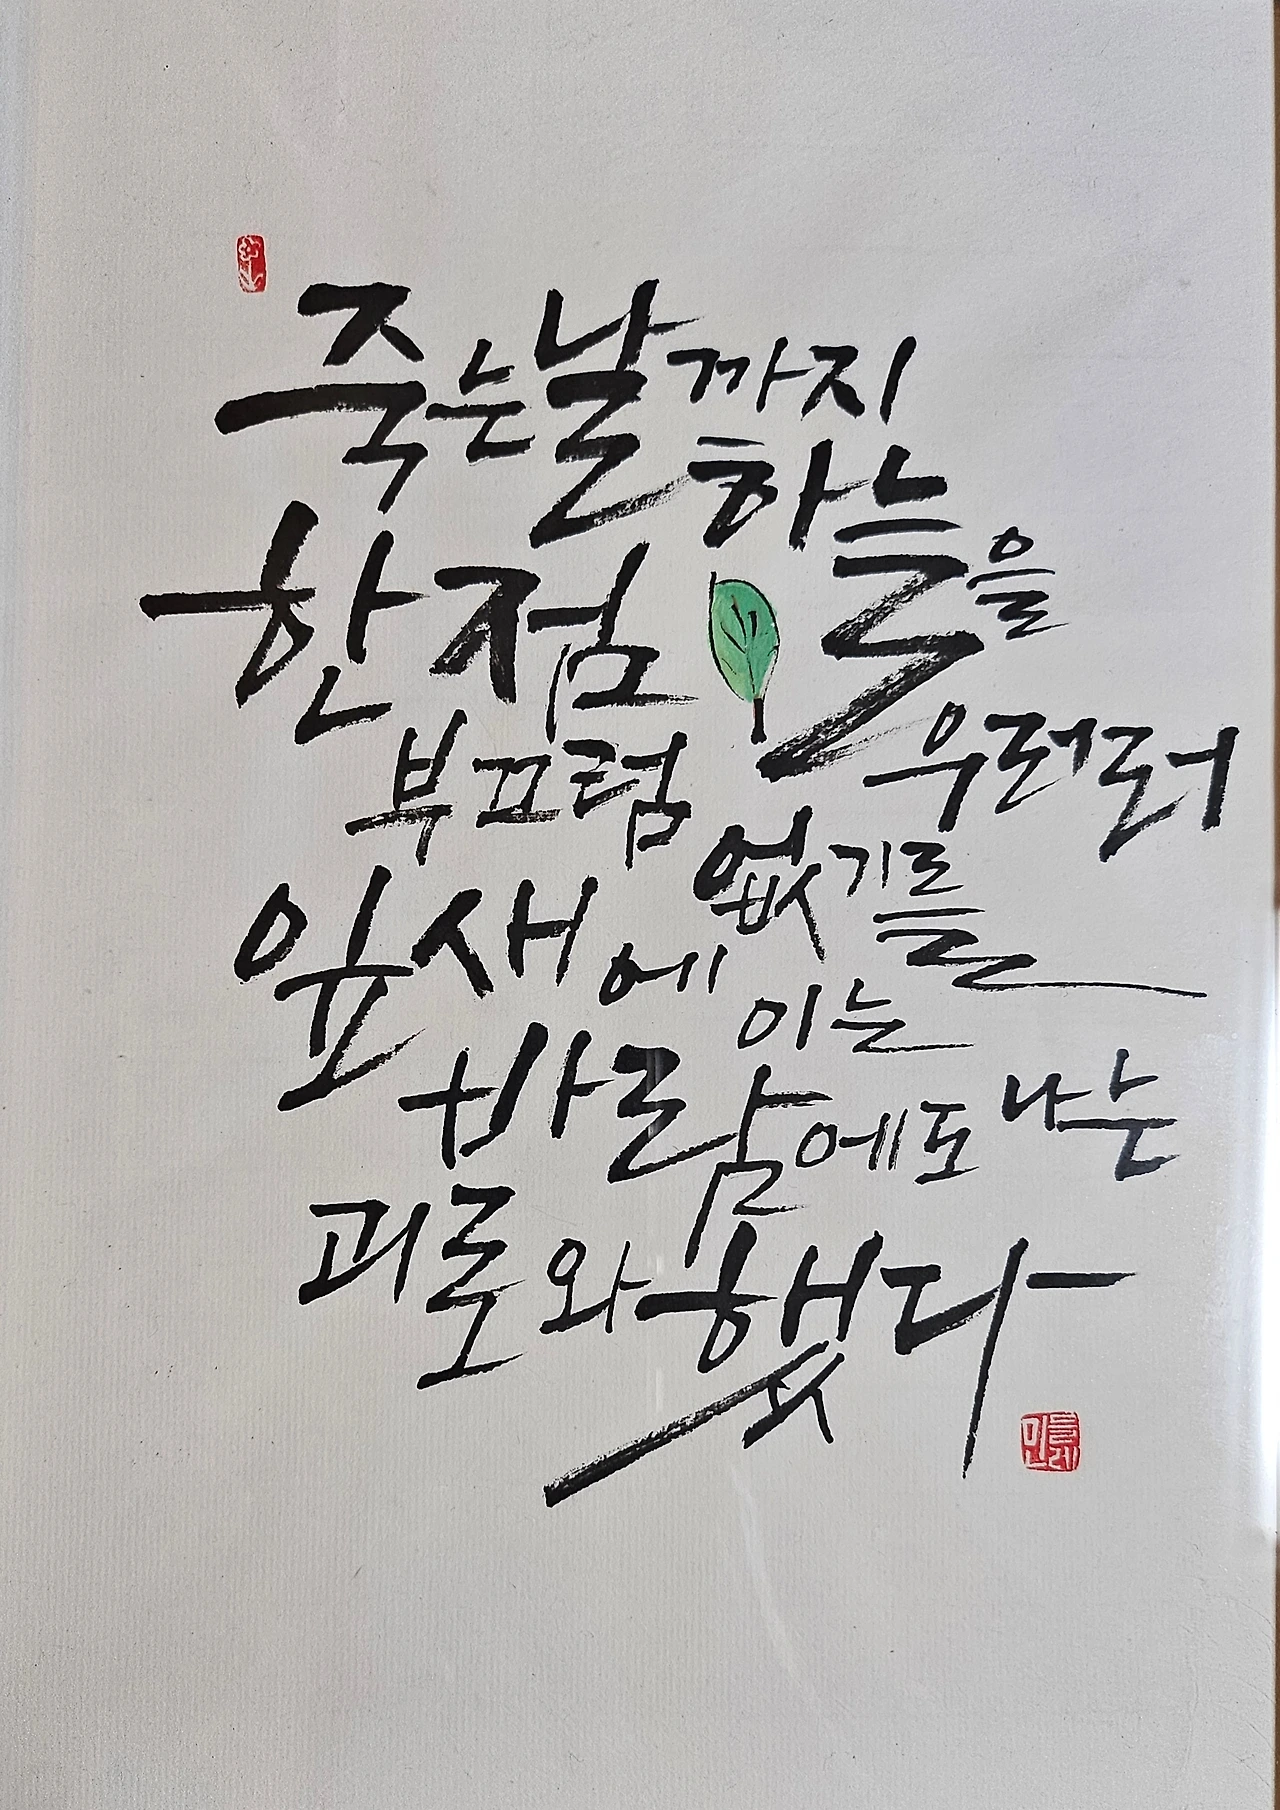 죽는날까지
하늘을
우러러
한점
부끄럼
없기를
잎새에
이는
바람에도 나는
괴로와했다
민들레